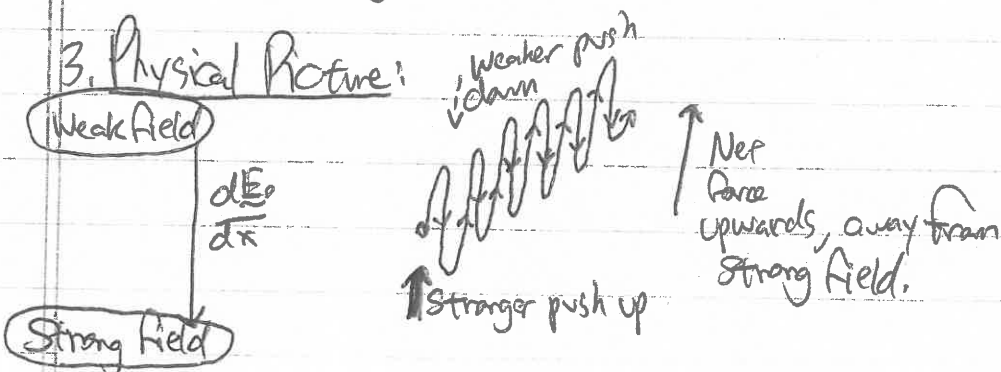 3. Physical Picture:
Weak field
dE₀
dx
Strong field
weaker push
down
Stronger push up
Net
force
upwards, away from
strong field.